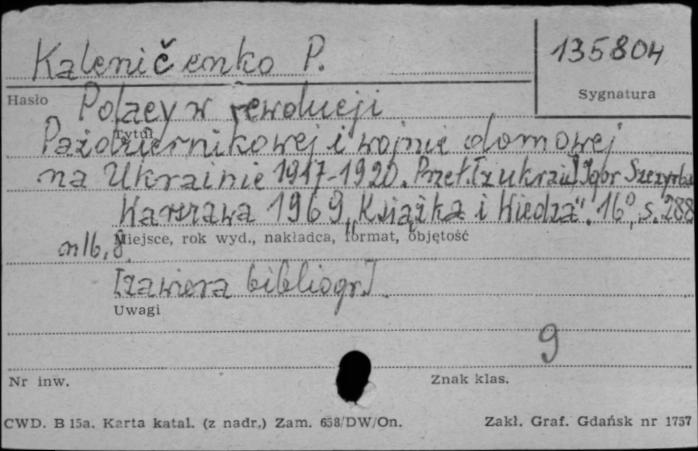 Kaleničenko P.
135804
Hasło
Sygnatura
Polacy w rewolucji
Tytuł
Październikowej i wojnie domowej
na Ukrainie 1917-1920. Przeł. [z ukraiń.] Igor Szczyrba
Warszawa 1969 „Książka i Wiedza". 16°, s. 288
Miejsce, rok wyd., nakładca, format, objętość
nlb, 8.
[zawiera bibliogr.]
Uwagi
9
Nr inw.
Znak klas.
CWD. B 15a. Karta katal. (z nadr.) Zam. 658/DW/On.
Zakł. Graf. Gdańsk nr 1757